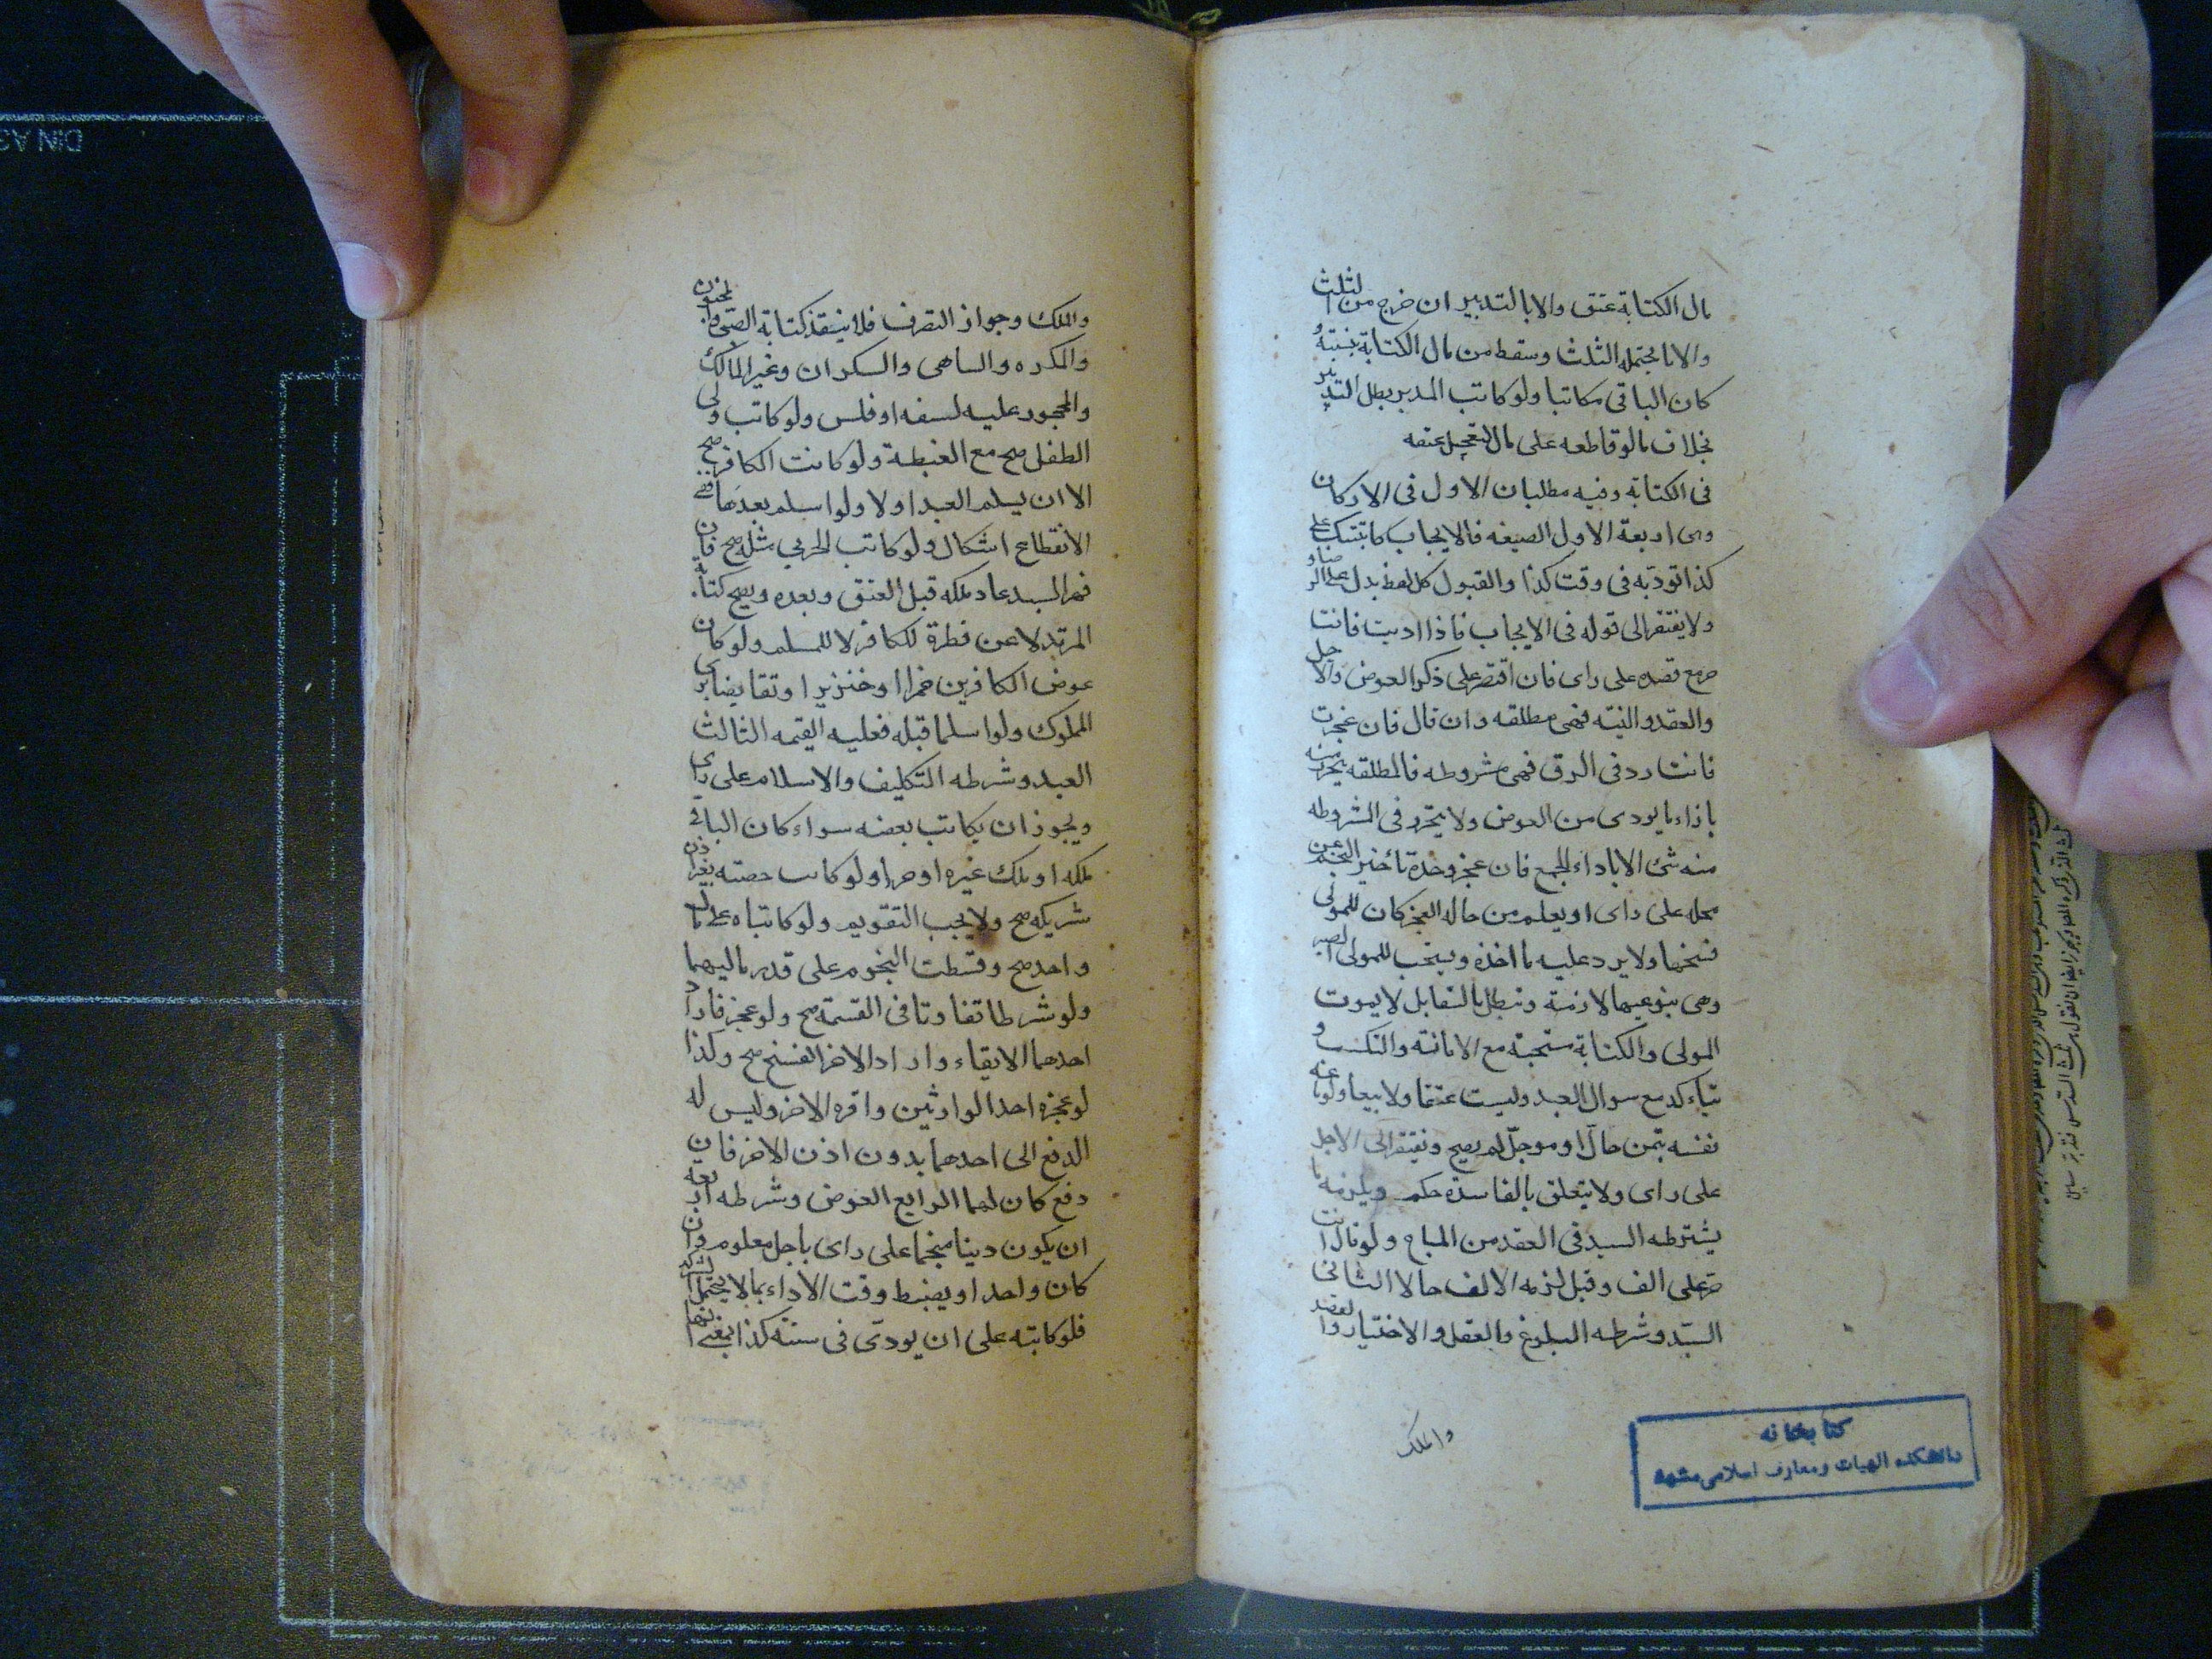 مال الكتابة عتق والا بالتدبير ان خرج من الثلث
والا ما يحتمله الثلث وسقط من مال الكتابة بنسبته و
كان الباقى مكاتبا ولو كاتب المدبر بطل التدبير
بخلاف ما لو قاطعه على مال لتعجيل عتقه
فى الكتابة وفيه مطلبان الاول فى الاركان
وهى اربعة الاول الصيغه فالايجاب كاتبتك على
كذا تودبه فى وقت كذا والقبول كل لفظ يدل على الرضا و
ولا يفتقر الى قوله فى الايجاب فاذا اديت فانت
حر مع قصده على راى فان اقتصر على ذكر العوض والاجل
والعقد والنيته فهى مطلقه وان قال فان عجزت
فانت رد فى الرق فهى مشروطه فالمطلقه يتحرر منه
بازاء ما يودى من العوض ولا يتحرر فى المشروطه
منه شئ الا باداء الجميع فان عجز وحده تأخير النجم عن
محله على راى او يعلم من حاله العجز كان للمولى
فسخها ولا يرد عليه ما اخذه ويستحب للمولى الصبر
وهى بنوعيها لازمة وتبطل بالتقايل لا بموت
المولى والكتابة مستحبة مع الامانة والتكسب و
يتاءكد مع سوال العبد وليست عتقا ولا بيعا ولو باعه
نفسه بثمن حال او موجل لم يصح ويفتقر الى الاجل
على راى ولا يتعلق بالفاسدة حكم ويلزمه ما
يشترطه السيد فى العقد من المباح ولو قال انت
حر على الف وقبل لزمه الالف حالا الثانى
السيد وشرطه البلوغ والعقل والاختيار والقصد
والملك
كتابخانه
دانشكده الهيات ومعارف اسلامى مشهد
والملك وجواز التصرف فلا ينفذ كتابة الصبى والمجنون
والمكره والساهى والسكران وغير المالك
والمحجور عليه لسفه او فلس ولو كاتب ولى
الطفل صح مع الغبطة ولو كاتب الكافر صح
الا ان يسلم العبد اولا ولو اسلم بعدها ففى
الانقطاع اشكال ولو كاتب الحربي مثله صح فان
قهر السيد عاد ملكه قبل العتق وبعده ويصح كتابة
المرتد لا عن فطرة للكافر لا للمسلم ولو كان
عوض الكافرين خمرا او خنزيرا وتقايضا برى
المملوك ولو اسلما قبله فعليه القيمه الثالث
العبد وشرطه التكليف والاسلام على راى
ويجوز ان يكاتب بعضه سواء كان الباقى
ملكه او ملك غيره او حرا ولو كاتب حصته بغير اذن
شريكه صح ولا يجب التقويم ولو كاتباه على مال
واحد صح وقسطت النجوم على قدر ماليهما
ولو شرطا تفاوتا فى القسمة صح ولو عجز فاراد
احدهما الابقاء واراد الاخر الفسخ صح وكذا
لو عجزه احد الوارثين واقره الاخر وليس له
الدفع الى احدهما بدون اذن الاخر فان
دفع كان لهما الرابع العوض وشرطه اربعة
ان يكون دينا منجما على راى باجل معلوم وان
كان واحدا ويضبط وقت الاداء بما لا يحتمل الشركه
فلو كاتبه على ان يودى فى سنة كذا بمعنى انها